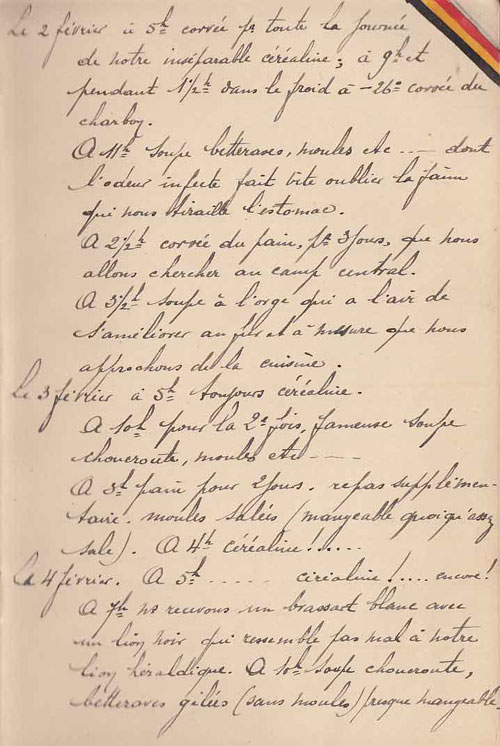 Le 2 février à 5h corvée pr toute la journée
de notre inséparable céréaline; à 9h et
pendant 1½h dans le froid à -26° corvée du
charbon.
A 11h soupe betteraves, moules etc ---- dont
l'odeur infecte fait vite oublier la faim
qui nous tiraille l'estomac.
A 2½h corvée du pain, pr 3 jours, que nous
allons chercher au camp central.
A 3½h soupe à l'orge qui a l'air de
s'améliorer au fur et à mesure que nous
approchons de la cuisine.
Le 3 février à 5h toujours céréaline.
A 10h pour la 2e fois, fameuse soupe
choucroute, moules etc ----
A 3h pain pour 2 jours. repas supplémen-
taire. moules salées (mangeable quoiqu'assez
sale). A 4h céréaline!.....
Le 4 février. A 5h ...... céréaline!.... encore!
A 7h ns recevons un brassart blanc avec
un lion noir qui ressemble pas mal à notre
lion héraldique. A 10h soupe choucroute,
betteraves gelées (sans moules) presque mangeable.